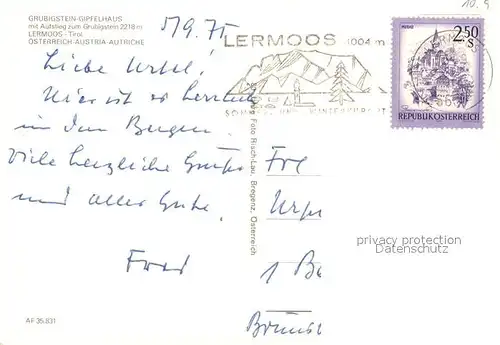 10.9
GRUBIGSTEIN-GIPFELHAUS
mit Aufstieg zum Grubigstein 2218 m
LERMOOS - Tirol
ÖSTERREICH-AUSTRIA-AUTRICHE
5/9.75
LERMOOS 1004 m
2.50 S
REPUBLIK ÖSTERREICH
Liebe Ursel!
Hier ist es herrlich
in den Bergen.
Viele herzliche Grüße
und alles Gute.
Fred
Foto Risch-Lau, Bregenz, Österreich
1 Be
privacy protection
Datenschutz
AF 35.831